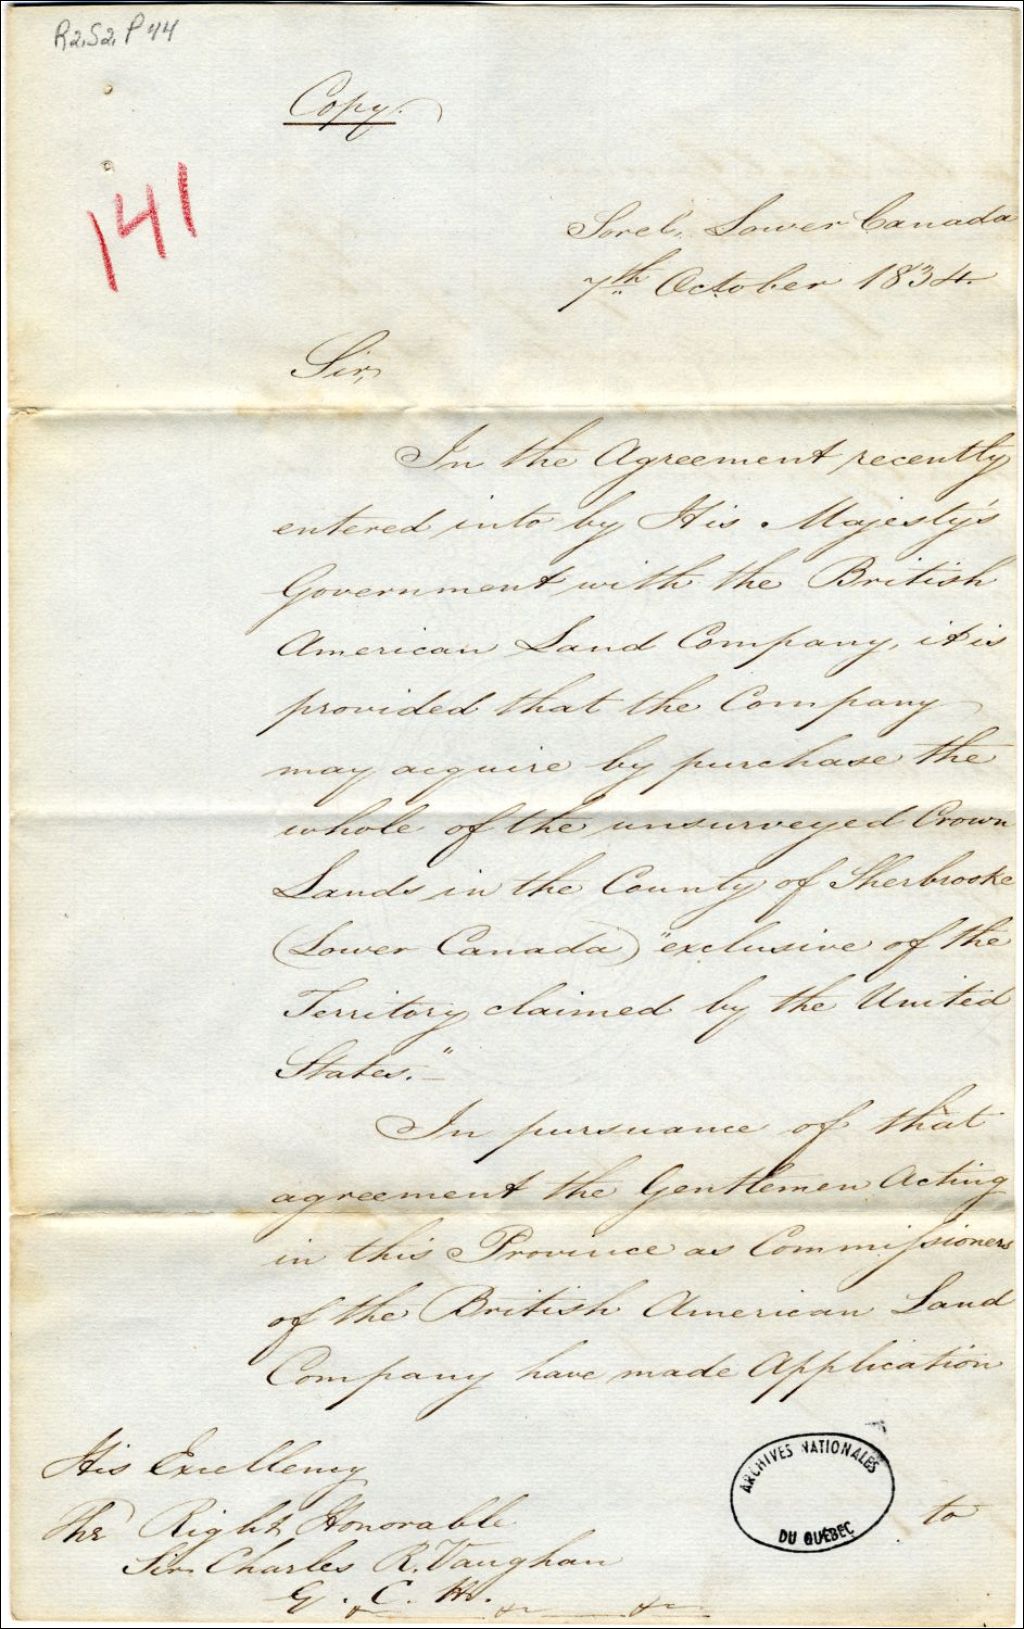 R2, S2, P44
Copy.
141
Sorel, Lower Canada
7th October 1834.
Sir,
In the Agreement recently
entered into by His Majesty's
Government with the British
American Land Company, it is
provided that the Company
may acquire by purchase the
whole of the unsurveyed Crown
Lands in the County of Sherbrooke
(Lower Canada) "exclusive of the
Territory claimed by the United
States."
In pursuance of that
agreement the Gentlemen Acting
in this Province as Commissioners
of the British American Land
Company have made Application
to
His Excellency
The Right Honorable
Sir Charles R. Vaughan
G. C. H.
ARCHIVES NATIONALES
DU QUÉBEC